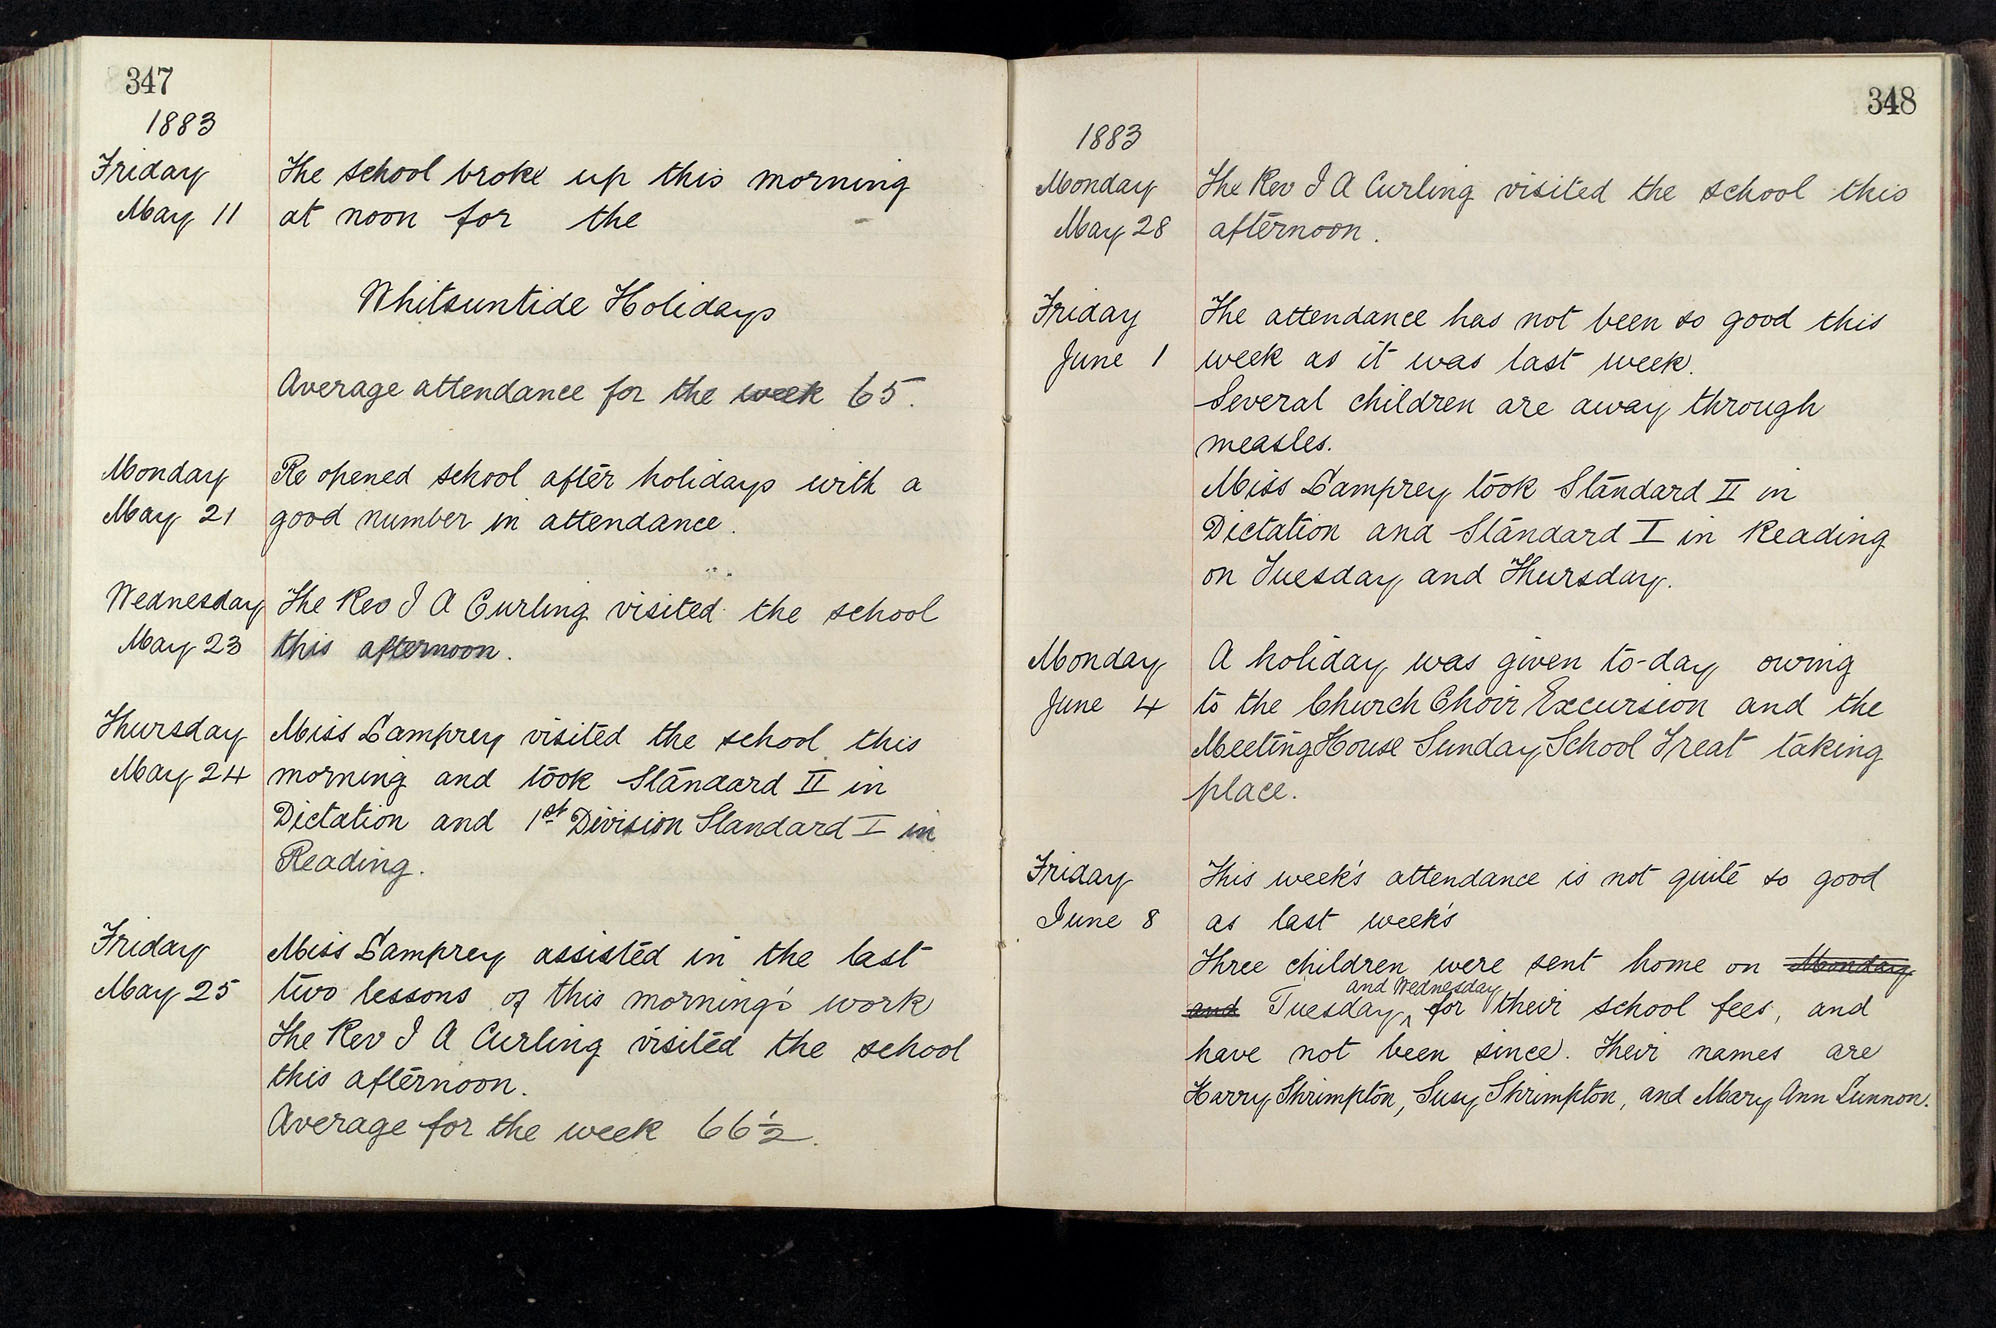 347
1883
Friday The school broke up this morning
May 11 at noon for the
Whitsuntide Holidays
Average attendance for the week 65.
Monday Re opened school after holidays with a
May 21 good number in attendance.
Wednesday The Rev J A Curling visited the school
May 23 this afternoon.
Thursday Miss Lamprey visited the school this
May 24 morning and took Standard II in
Dictation and 1st Division Standard I in
Reading.
Friday Miss Lamprey assisted in the last
May 25 two lessons of this morning's work
The Rev J A Curling visited the school
this afternoon.
Average for the week 66½.
348
1883
Monday The Rev J A Curling visited the school this
May 28 afternoon.
Friday The attendance has not been so good this
June 1 week as it was last week.
Several children are away through
measles.
Miss Lamprey took Standard II in
Dictation and Standard I in Reading
on Tuesday and Thursday.
Monday A holiday was given to-day owing
June 4 to the Church Choir Excursion and the
Meeting House Sunday School Treat taking
place.
Friday This week's attendance is not quite so good
June 8 as last week's
Three children were sent home on Monday
and Wednesday
and Tuesday ^ for their school fees, and
have not been since. Their names are
Harry Shrimpton, Susy Shrimpton, and Mary Ann Lunnon.